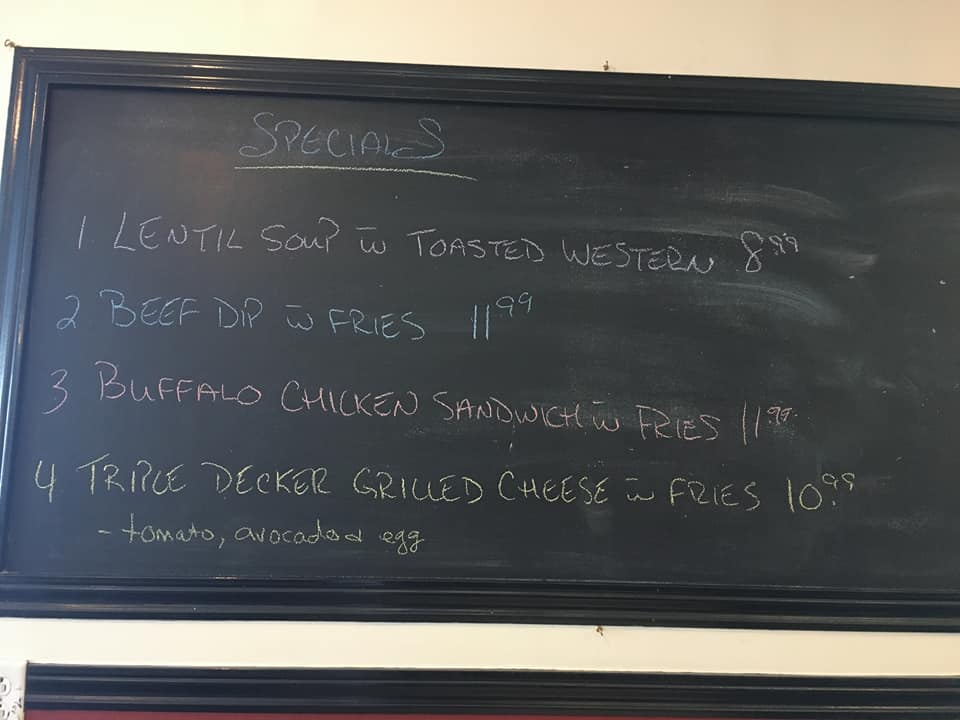 SPECIALS
1 LENTIL SOUP w TOASTED WESTERN 8.99
2 BEEF DIP w FRIES 11 99
3 BUFFALO CHICKEN SANDWICH w FRIES 11 99
4 TRIPLE DECKER GRILLED CHEESE w FRIES 10.99
- tomato, avocado & egg